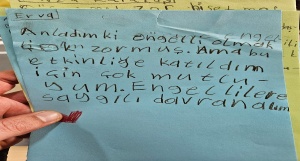 Esva
Anladım ki engelli olmak
çok zormuş. Ama bu
etkinliğe katıldım
için çok mutlu-
yum. Engellilere
saygılı davranalım